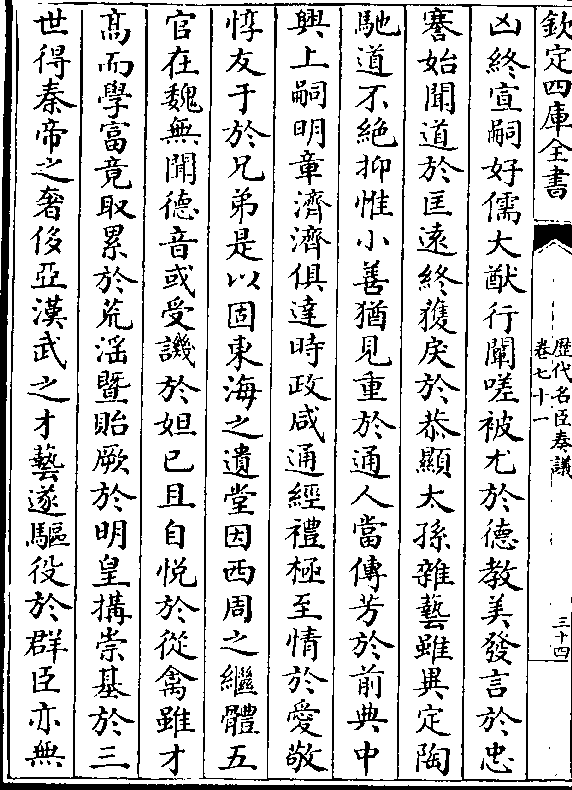 欽定四庫全書
歷代名臣奏議
卷七十一
三十四
凶終宣嗣好儒大猷行闡嗟被尤於德教美發言於忠
謇始聞道於匡遠終獲戾於恭顯太孫雜藝雖異定陶
馳道不絶抑惟小善猶見重於通人當傳芳於前典中
興上嗣明章濟濟俱達時政咸通經禮極至情於愛敬
惇友于於兄弟是以固東海之遺堂因西周之繼體五
官在魏無聞德音或受譏於妲已且自悦於從禽雖才
髙而學富竟取累於荒淫暨貽厥於明皇搆崇基於三
世得秦帝之奢侈亞漢武之才藝遂驅役於群臣亦無